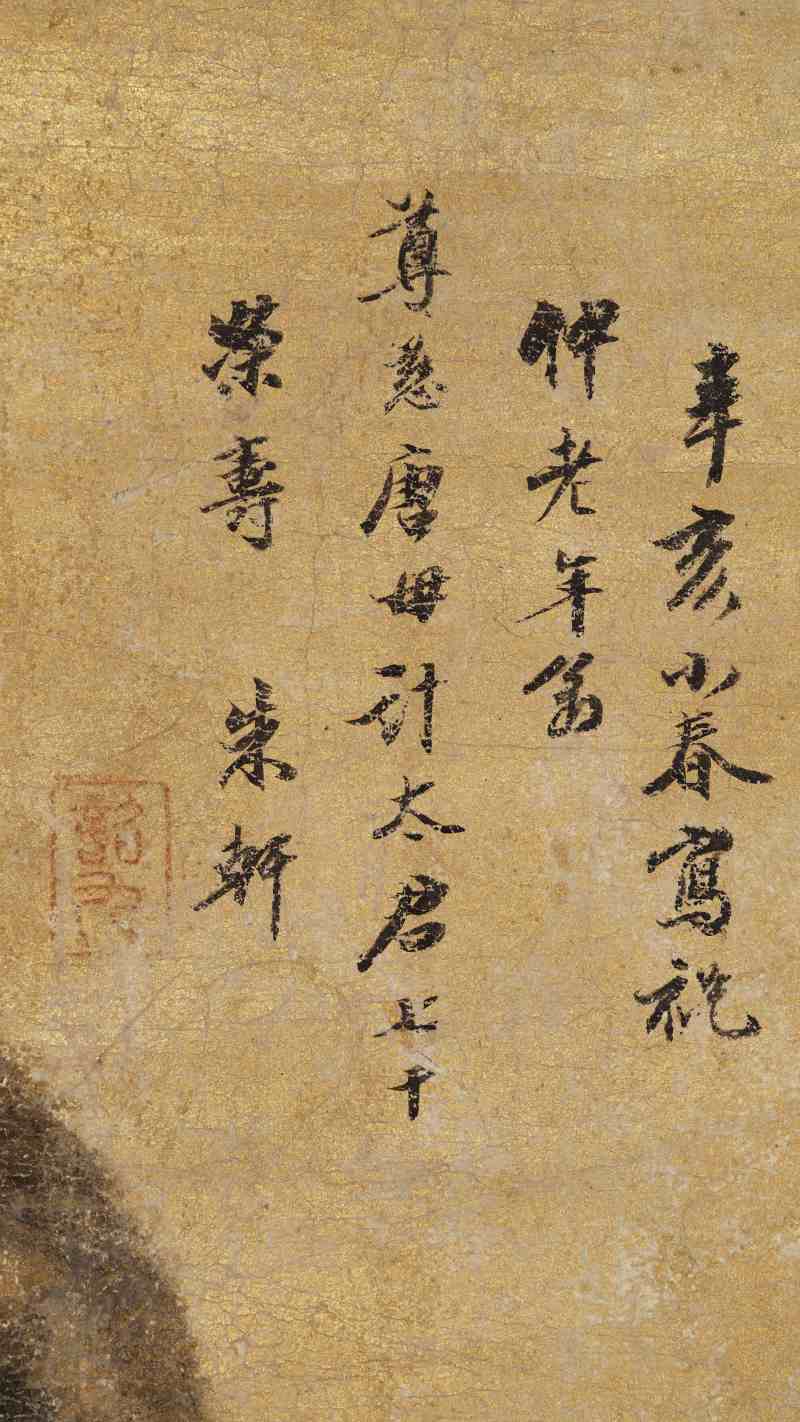 辛亥小春寫祝
仲老年翁
尊慈唐母計太君七十
榮壽　朱軒